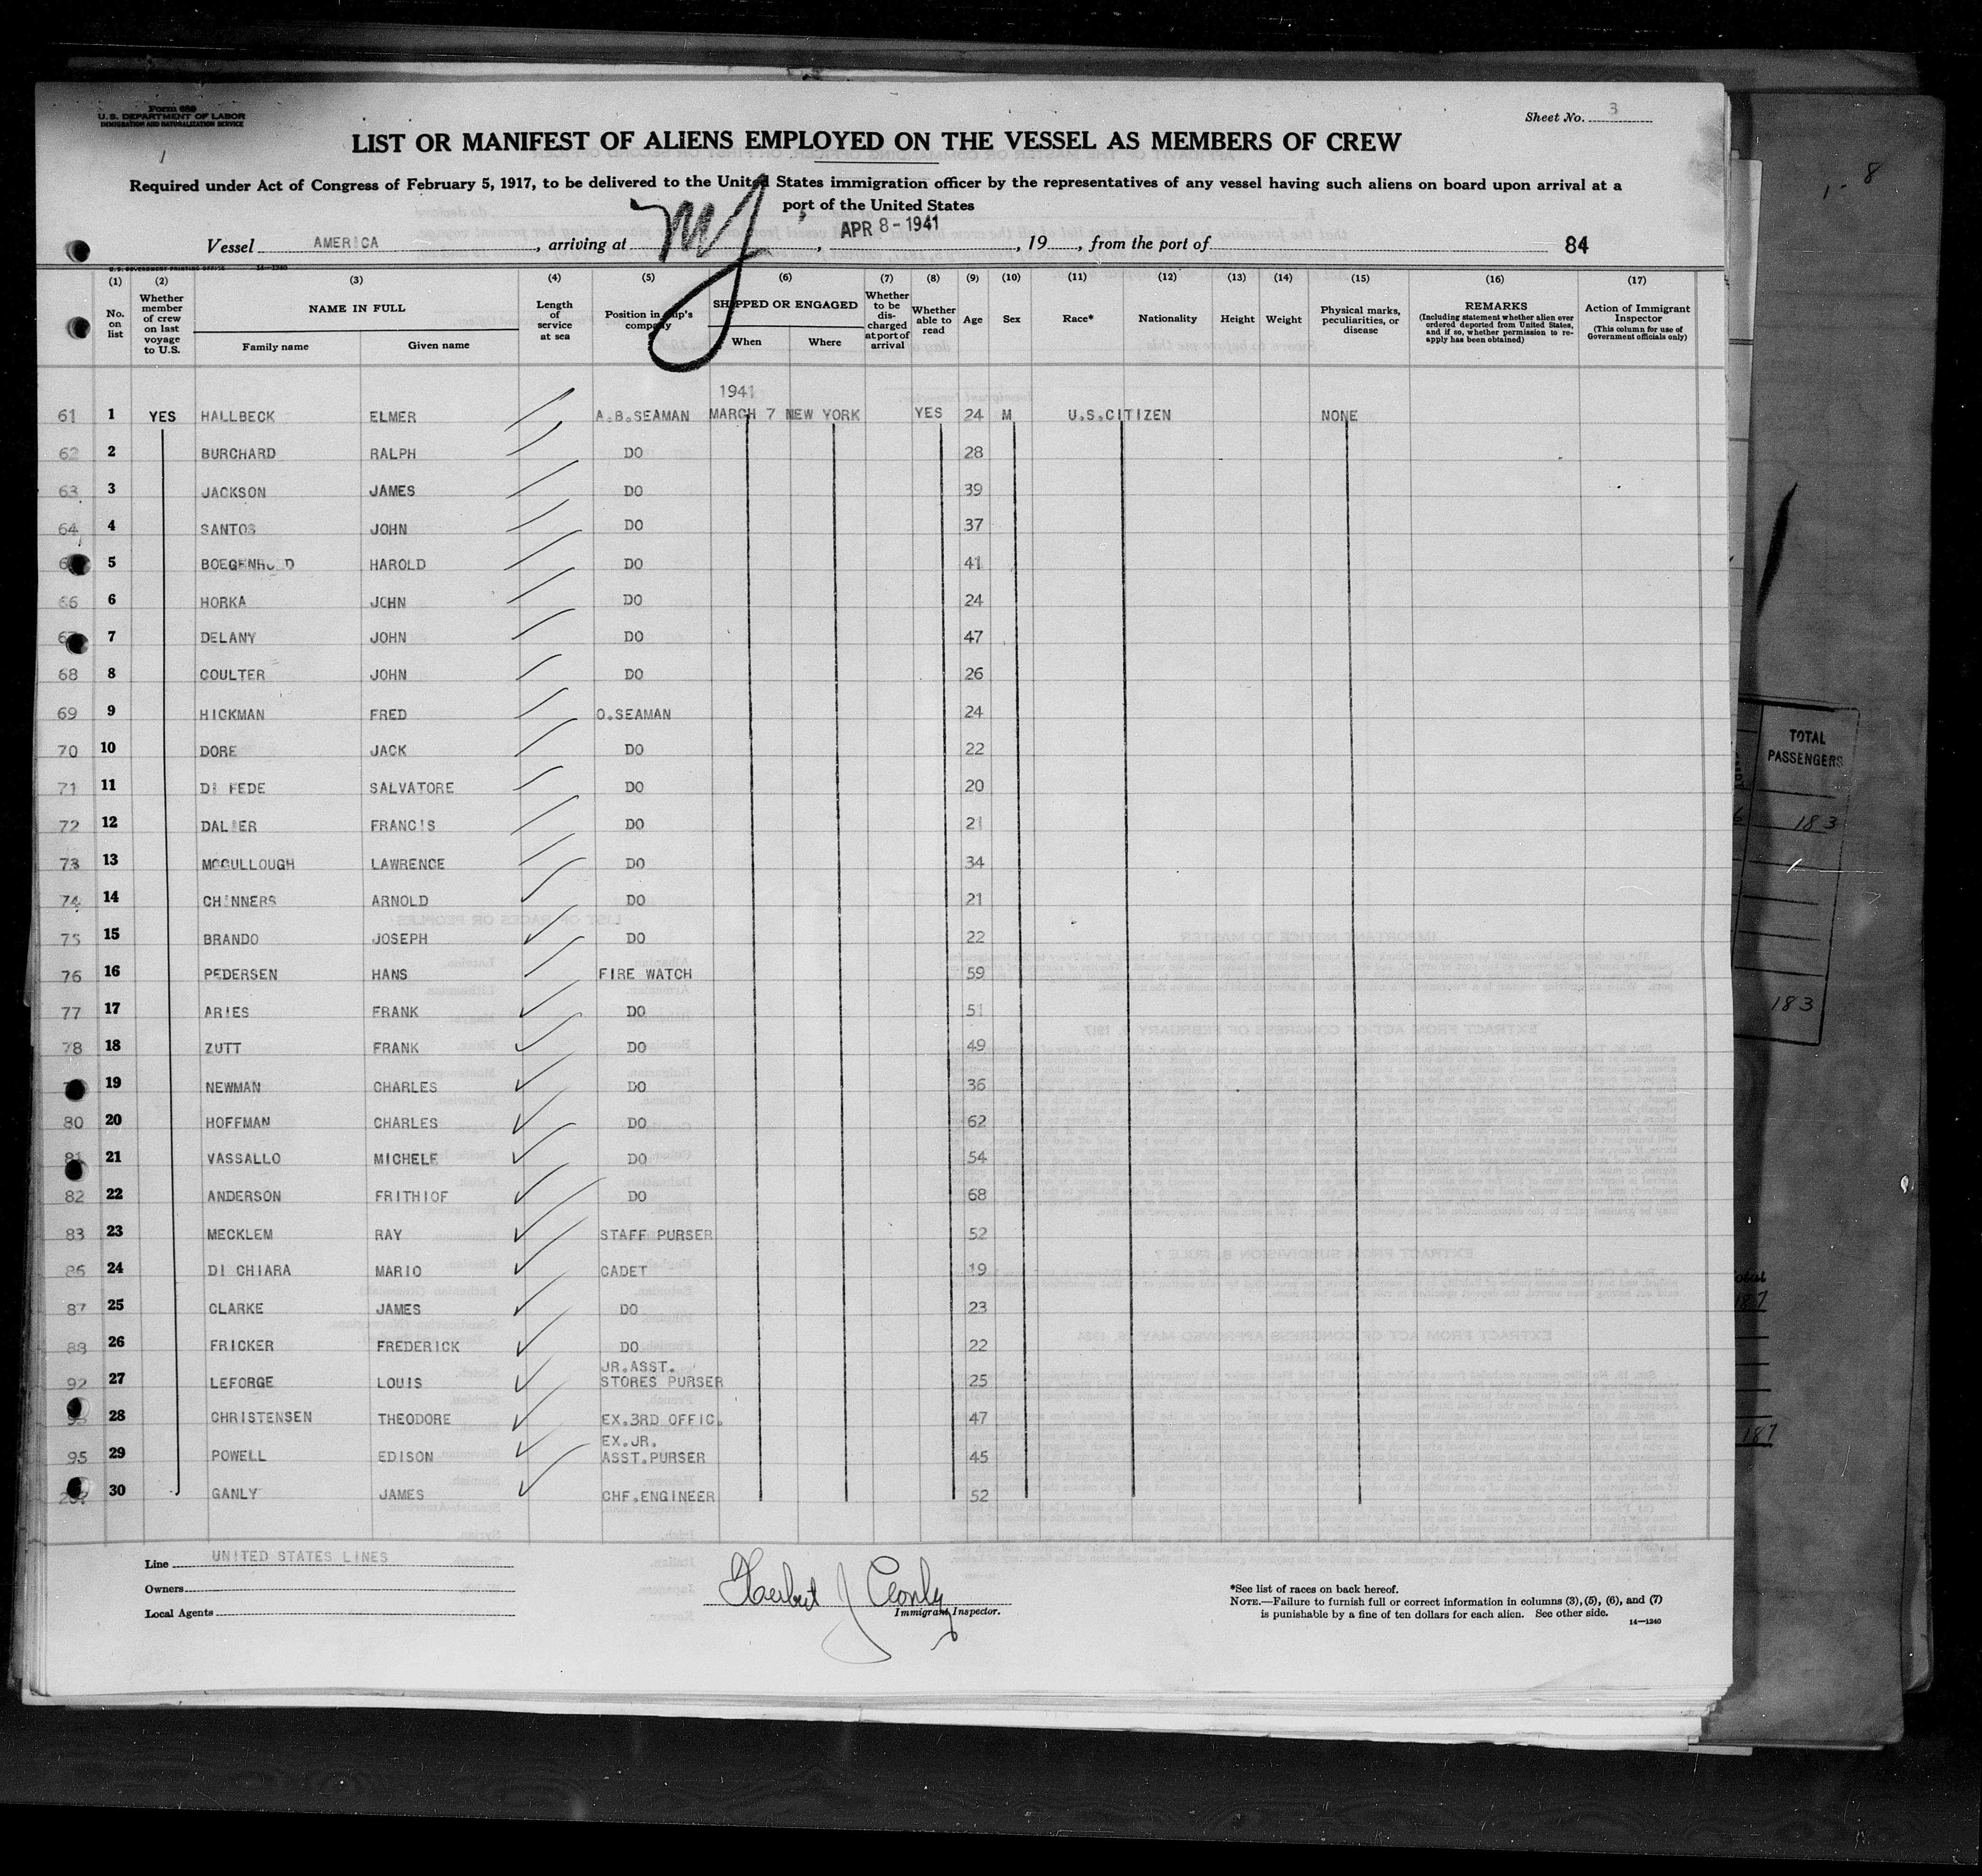 Form 689
U.S. DEPARTMENT OF LABOR
IMMIGRATION AND NATURALIZATION SERVICE
Sheet No. 3
1
LIST OR MANIFEST OF ALIENS EMPLOYED ON THE VESSEL AS MEMBERS OF CREW
Required under Act of Congress of February 5, 1917, to be delivered to the United States immigration officer by the representatives of any vessel having such aliens on board upon arrival at a
port of the United States
Vessel AMERICA, arriving at NY, APR 8-1941, 19, from the port of 84
U.S. GOVERNMENT PRINTING OFFICE 14—1240
(1) (2) (3) (4) (5) (6) (7) (8) (9) (10) (11) (12) (13) (14) (15) (16) (17)
No. on list
Whether member of crew on last voyage to U.S.
NAME IN FULL
Family name Given name
Length of service at sea
Position in ship's company
SHIPPED OR ENGAGED
When Where
Whether to be discharged at port of arrival
Whether able to read
Age Sex Race* Nationality Height Weight
Physical marks, peculiarities, or disease
REMARKS
(Including statement whether alien ever ordered deported from United States, and if so, whether permission to re-apply has been obtained)
Action of Immigrant Inspector
(This column for use of Government officials only)
1941
61 1 YES HALLBECK ELMER A.B.SEAMAN MARCH 7 NEW YORK YES 24 M U.S.CITIZEN NONE
62 2 BURCHARD RALPH DO 28
63 3 JACKSON JAMES DO 39
64 4 SANTOS JOHN DO 37
5 HAROLD DO 41
66 6 HORKA JOHN DO 24
7 DELANY JOHN DO 47
68 8 COULTER JOHN DO 26
69 9 HICKMAN FRED O.SEAMAN 24
70 10 DORE JACK DO 22
71 11 DI FEDE SALVATORE DO 20
72 12 FRANCIS DO 21
73 13 MCCULLOUGH LAWRENCE DO 34
74 14 CHINNERS ARNOLD DO 21
75 15 BRANDO JOSEPH DO 22
76 16 PEDERSEN HANS FIRE WATCH 59
77 17 ARIES FRANK DO 51
78 18 ZUTT FRANK DO 49
19 NEWMAN CHARLES DO 36
80 20 HOFFMAN CHARLES DO 62
81 21 VASSALLO MICHELE DO 54
82 22 ANDERSON FRITHIOF DO 68
83 23 MECKLEM RAY STAFF PURSER 52
86 24 DI CHIARA MARIO CADET 19
87 25 CLARKE JAMES DO 23
88 26 FRICKER FREDERICK DO 22
92 27 LEFORGE LOUIS JR.ASST. STORES PURSER 25
28 CHRISTENSEN THEODORE EX.3RD OFFIC. 47
95 29 POWELL EDISON EX.JR. ASST.PURSER 45
30 GANLY JAMES CHF.ENGINEER 52
Line UNITED STATES LINES
Owners
Local Agents
Herbert J
Immigrant Inspector.
*See list of races on back hereof.
NOTE.—Failure to furnish full or correct information in columns (3), (5), (6), and (7)
is punishable by a fine of ten dollars for each alien. See other side.
14—1240
TOTAL
PASSENGERS
183
183
187
187